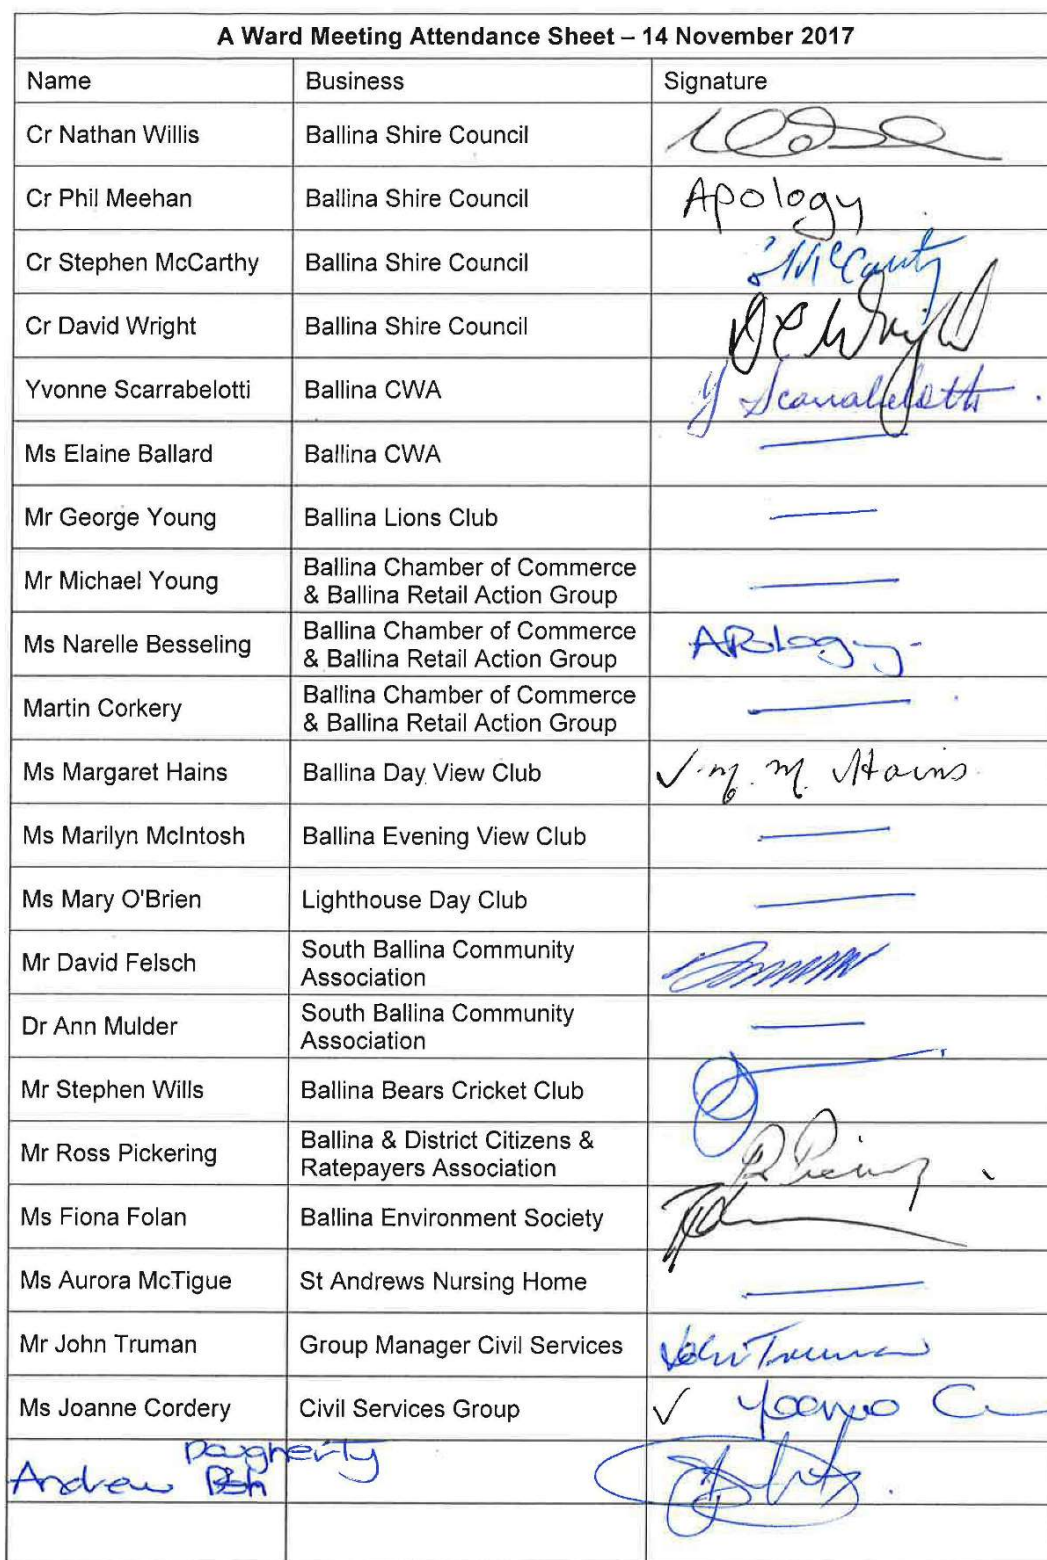 A Ward Meeting Attendance Sheet – 14 November 2017
Name Business Signature
Cr Nathan Willis Ballina Shire Council
Cr Phil Meehan Ballina Shire Council Apology
Cr Stephen McCarthy Ballina Shire Council SMcCarthy
Cr David Wright Ballina Shire Council D E Wright
Yvonne Scarrabelotti Ballina CWA Y Scarrabelotti
Ms Elaine Ballard Ballina CWA —
Mr George Young Ballina Lions Club —
Mr Michael Young Ballina Chamber of Commerce
& Ballina Retail Action Group —
Ms Narelle Besseling Ballina Chamber of Commerce
& Ballina Retail Action Group APology-
Martin Corkery Ballina Chamber of Commerce
& Ballina Retail Action Group —
Ms Margaret Hains Ballina Day View Club ✓ M. M. Hains
Ms Marilyn McIntosh Ballina Evening View Club —
Ms Mary O'Brien Lighthouse Day Club —
Mr David Felsch South Ballina Community
Association
Dr Ann Mulder South Ballina Community
Association —
Mr Stephen Wills Ballina Bears Cricket Club
Mr Ross Pickering Ballina & District Citizens &
Ratepayers Association
Ms Fiona Folan Ballina Environment Society
Ms Aurora McTigue St Andrews Nursing Home —
Mr John Truman Group Manager Civil Services John Truman
Ms Joanne Cordery Civil Services Group ✓ Joanne C
Daugherty
Andrew